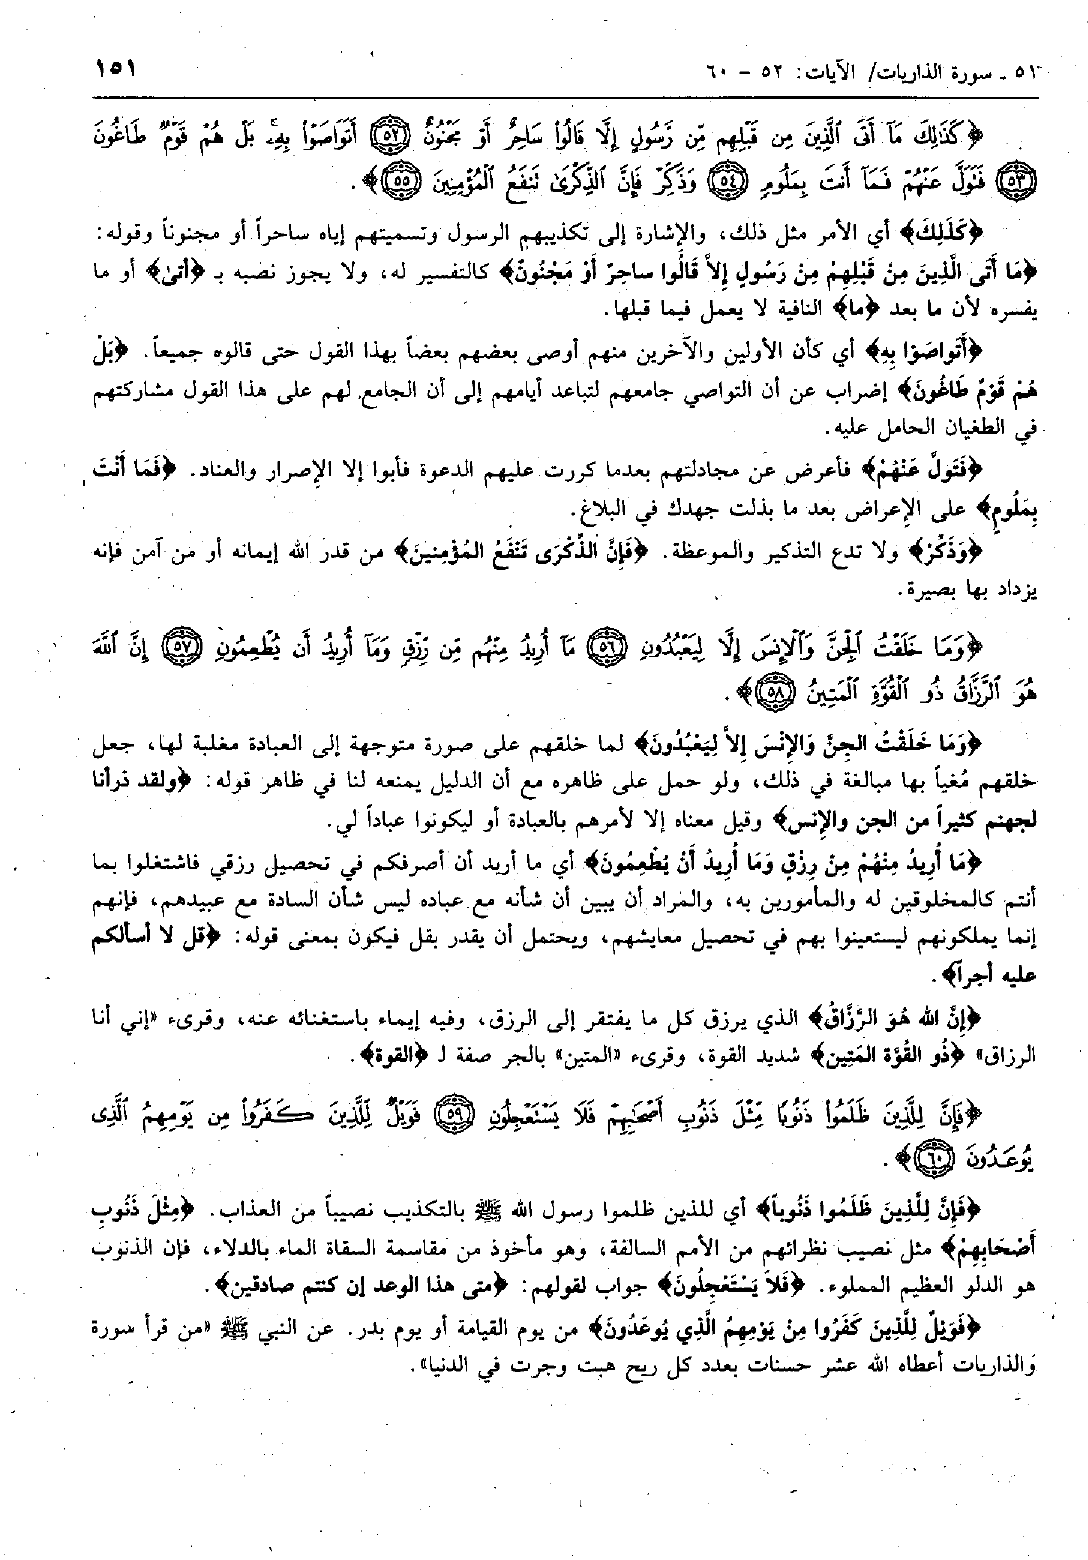 ٥١ - سورة الذاريات/ الآيات: ٥٢ - ٦٠
١٥١
﴿كَذَٰلِكَ مَآ أَتَى ٱلَّذِينَ مِن قَبْلِهِم مِّن رَّسُولٍ إِلَّا قَالُوا۟ سَاحِرٌ أَوْ مَجْنُونٌ ﴿٥٢﴾ أَتَوَاصَوْا۟ بِهِۦۚ بَلْ هُمْ قَوْمٌ طَاغُونَ
﴿٥٣﴾ فَتَوَلَّ عَنْهُمْ فَمَآ أَنتَ بِمَلُومٍ ﴿٥٤﴾ وَذَكِّرْ فَإِنَّ ٱلذِّكْرَىٰ تَنفَعُ ٱلْمُؤْمِنِينَ ﴿٥٥﴾﴾.
﴿كَذَلِكَ﴾ أي الأمر مثل ذلك، والإشارة إلى تكذيبهم الرسول وتسميتهم إياه ساحراً أو مجنوناً وقوله:
﴿مَا أَتَى الَّذِينَ مِنْ قَبْلِهِمْ مِنْ رَسُولٍ إِلاَّ قَالُوا ساحِرٌ أَوْ مَجْنُونٌ﴾ كالتفسير له، ولا يجوز نصبه بـ ﴿أتى﴾ أو ما
يفسره لأن ما بعد ﴿ما﴾ النافية لا يعمل فيما قبلها.
﴿أَتَواصَوْا بِهِ﴾ أي كأن الأولين والآخرين منهم أوصى بعضهم بعضاً بهذا القول حتى قالوه جميعاً. ﴿بَلْ
هُمْ قَوْمٌ طَاغُونَ﴾ إضراب عن أن التواصي جامعهم لتباعد أيامهم إلى أن الجامع لهم على هذا القول مشاركتهم
في الطغيان الحامل عليه.
﴿فَتَولَّ عَنْهُمْ﴾ فأعرض عن مجادلتهم بعدما كررت عليهم الدعوة فأبوا إلا الإصرار والعناد. ﴿فَمَا أَنْتَ
بِمَلُومٍ﴾ على الإعراض بعد ما بذلت جهدك في البلاغ.
﴿وَذَكِّرْ﴾ ولا تدع التذكير والموعظة. ﴿فَإِنَّ الذِّكْرَى تَنْفَعُ المُؤْمِنِينَ﴾ من قدر الله إيمانه أو من آمن فإنه
يزداد بها بصيرة.
﴿وَمَا خَلَقْتُ ٱلْجِنَّ وَٱلْإِنسَ إِلَّا لِيَعْبُدُونِ ﴿٥٦﴾ مَآ أُرِيدُ مِنْهُم مِّن رِّزْقٍ وَمَآ أُرِيدُ أَن يُطْعِمُونِ ﴿٥٧﴾ إِنَّ ٱللَّهَ
هُوَ ٱلرَّزَّاقُ ذُو ٱلْقُوَّةِ ٱلْمَتِينُ ﴿٥٨﴾﴾.
﴿وَمَا خَلَقْتُ الجِنَّ وَالإِنْسَ إِلاَّ لِيَعْبُدُونَ﴾ لما خلقهم على صورة متوجهة إلى العبادة مغلبة لها، جعل
خلقهم مُغياً بها مبالغة في ذلك، ولو حمل على ظاهره مع أن الدليل يمنعه لنا في ظاهر قوله: ﴿ولقد ذرأنا
لجهنم كثيراً من الجن والإنس﴾ وقيل معناه إلا لأمرهم بالعبادة أو ليكونوا عباداً لي.
﴿مَا أُرِيدُ مِنْهُمْ مِنْ رِزْقٍ وَمَا أُرِيدُ أَنْ يُطْعِمُونَ﴾ أي ما أريد أن أصرفكم في تحصيل رزقي فاشتغلوا بما
أنتم كالمخلوقين له والمأمورين به، والمراد أن يبين أن شأنه مع عباده ليس شأن السادة مع عبيدهم، فإنهم
إنما يملكونهم ليستعينوا بهم في تحصيل معايشهم، ويحتمل أن يقدر بقل فيكون بمعنى قوله: ﴿قل لا أسألكم
عليه أجراً﴾.
﴿إِنَّ الله هُوَ الرَّزَّاقُ﴾ الذي يرزق كل ما يفتقر إلى الرزق، وفيه إيماء باستغنائه عنه، وقرىء «إني أنا
الرزاق» ﴿ذُو القُوَّة المَتِين﴾ شديد القوة، وقرىء «المتين» بالجر صفة لـ ﴿القوة﴾.
﴿فَإِنَّ لِلَّذِينَ ظَلَمُوا۟ ذَنُوبًا مِّثْلَ ذَنُوبِ أَصْحَٰبِهِمْ فَلَا يَسْتَعْجِلُونِ ﴿٥٩﴾ فَوَيْلٌ لِّلَّذِينَ كَفَرُوا۟ مِن يَوْمِهِمُ ٱلَّذِى
يُوعَدُونَ ﴿٦٠﴾﴾.
﴿فَإِنَّ لِلَّذِينَ ظَلَمُوا ذَنُوباً﴾ أي للذين ظلموا رسول الله ﷺ بالتكذيب نصيباً من العذاب. ﴿مِثْلَ ذَنُوبِ
أَصْحَابِهِمْ﴾ مثل نصيب نظرائهم من الأمم السالفة، وهو مأخوذ من مقاسمة السقاة الماء بالدلاء، فإن الذنوب
هو الدلو العظيم المملوء. ﴿فَلاَ يَسْتَعْجِلُونَ﴾ جواب لقولهم: ﴿متى هذا الوعد إن كنتم صادقين﴾.
﴿فَوَيْلٌ لِلَّذِينَ كَفَرُوا مِنْ يَوْمِهِمُ الَّذِي يُوعَدُونَ﴾ من يوم القيامة أو يوم بدر. عن النبي ﷺ «من قرأ سورة
وَالذاريات أعطاه الله عشر حسنات بعدد كل ريح هبت وجرت في الدنيا».